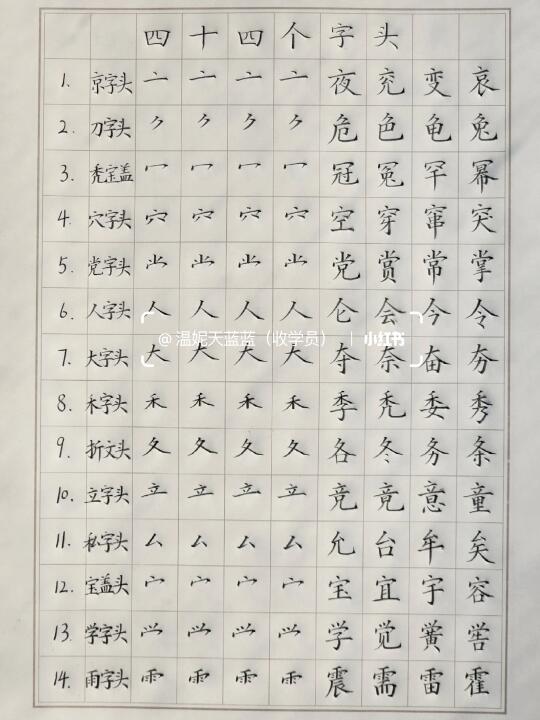 四十四个字头
1. 京字头 亠 亠 亠 亠 夜 兖 变 哀
2. 刀字头 ⺈ ⺈ ⺈ ⺈ 危 色 龟 兔
3. 秃宝盖 冖 冖 冖 冖 冠 冤 罕 幂
4. 穴字头 穴 穴 穴 穴 空 穿 窜 突
5. 党字头 党 赏 常 掌
6. 人字头 人 人 人 人 仑 会 今 令
@温妮天蓝蓝(收学员) | 小红书
7. 大字头 大 大 大 大 夺 奈 奋 夯
8. 禾字头 禾 禾 禾 禾 季 秃 委 秀
9. 折文头 夂 夂 夂 夂 各 冬 务 条
10. 立字头 立 立 立 立 竞 竟 意 童
11. 私字头 厶 厶 厶 厶 允 台 牟 矣
12. 宝盖头 宀 宀 宀 宀 宝 宜 宇 容
13. 学字头 𭕄 𭕄 𭕄 𭕄 学 觉 黉 喾
14. 雨字头 ⻗ ⻗ ⻗ ⻗ 震 需 雷 霍